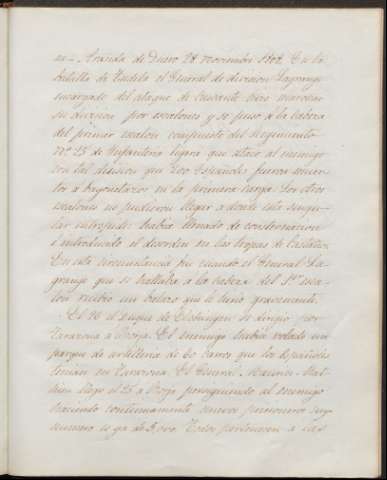 m - Aranda de Duero 28 noviembre 1808. En la
batalla de Tudela el General de division Lagrange
encargado del ataque de Cascante hizo marchar
su division por escalones y se puso á la cabeza
del primer escalon compuesto del regimiento
Nº 25 de Infantería ligera que atacó al enemigo
con tal decision que 200 Españoles fueron muer
tos a bayonetazos en la primera carga. Los otros
escalones no pudieron llegar a donde esta singu
lar intrepidez habia llenado de consternacion
é introducido el desorden en las tropas de Castaños.
En esta circunstancia fue cuando el General La
grange que se hallaba a la cabeza del 1er esca
lon recibio un balazo que le hirio gravemente.
El 26 el duque de Elchingen se dirigio por
Tarazona a Borja. El enemigo habia volado un
parque de artilleria de 60 carros que los españoles
tenian en Tarazona. El General Maurice Mat-
hieu llegó el 25 a Borja persiguiendo al enemigo
haciendo continuamente nuevos prisioneros cuyo
numero es ya de 5,000. Todos pertenecen a las